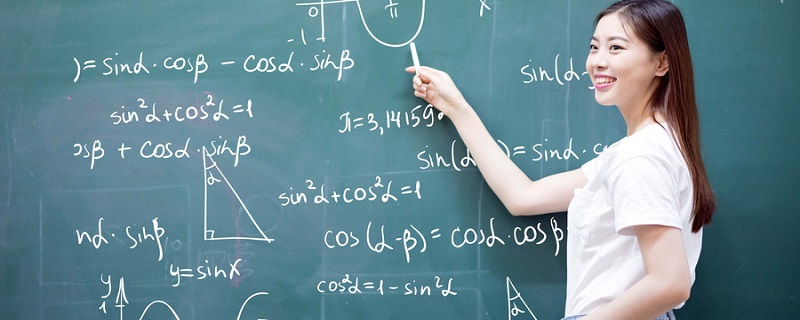 0 π x
-1
)= sinα·cosβ - cosα·sinβ
sin(α-
sin²α+cos²α=1
π=3,14159
osβ + cosα·sinβ
sin(α )= sinα·c
α
sin²α+cos²α=1
nα·sinβ
cos(α-β)= cosα·cosβ
y=sinx
y
1
cos²α=1-sin²α
α